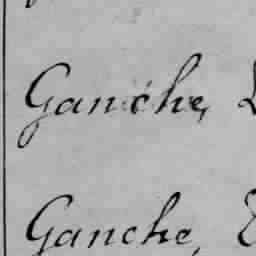 Ganche,
Ganche,